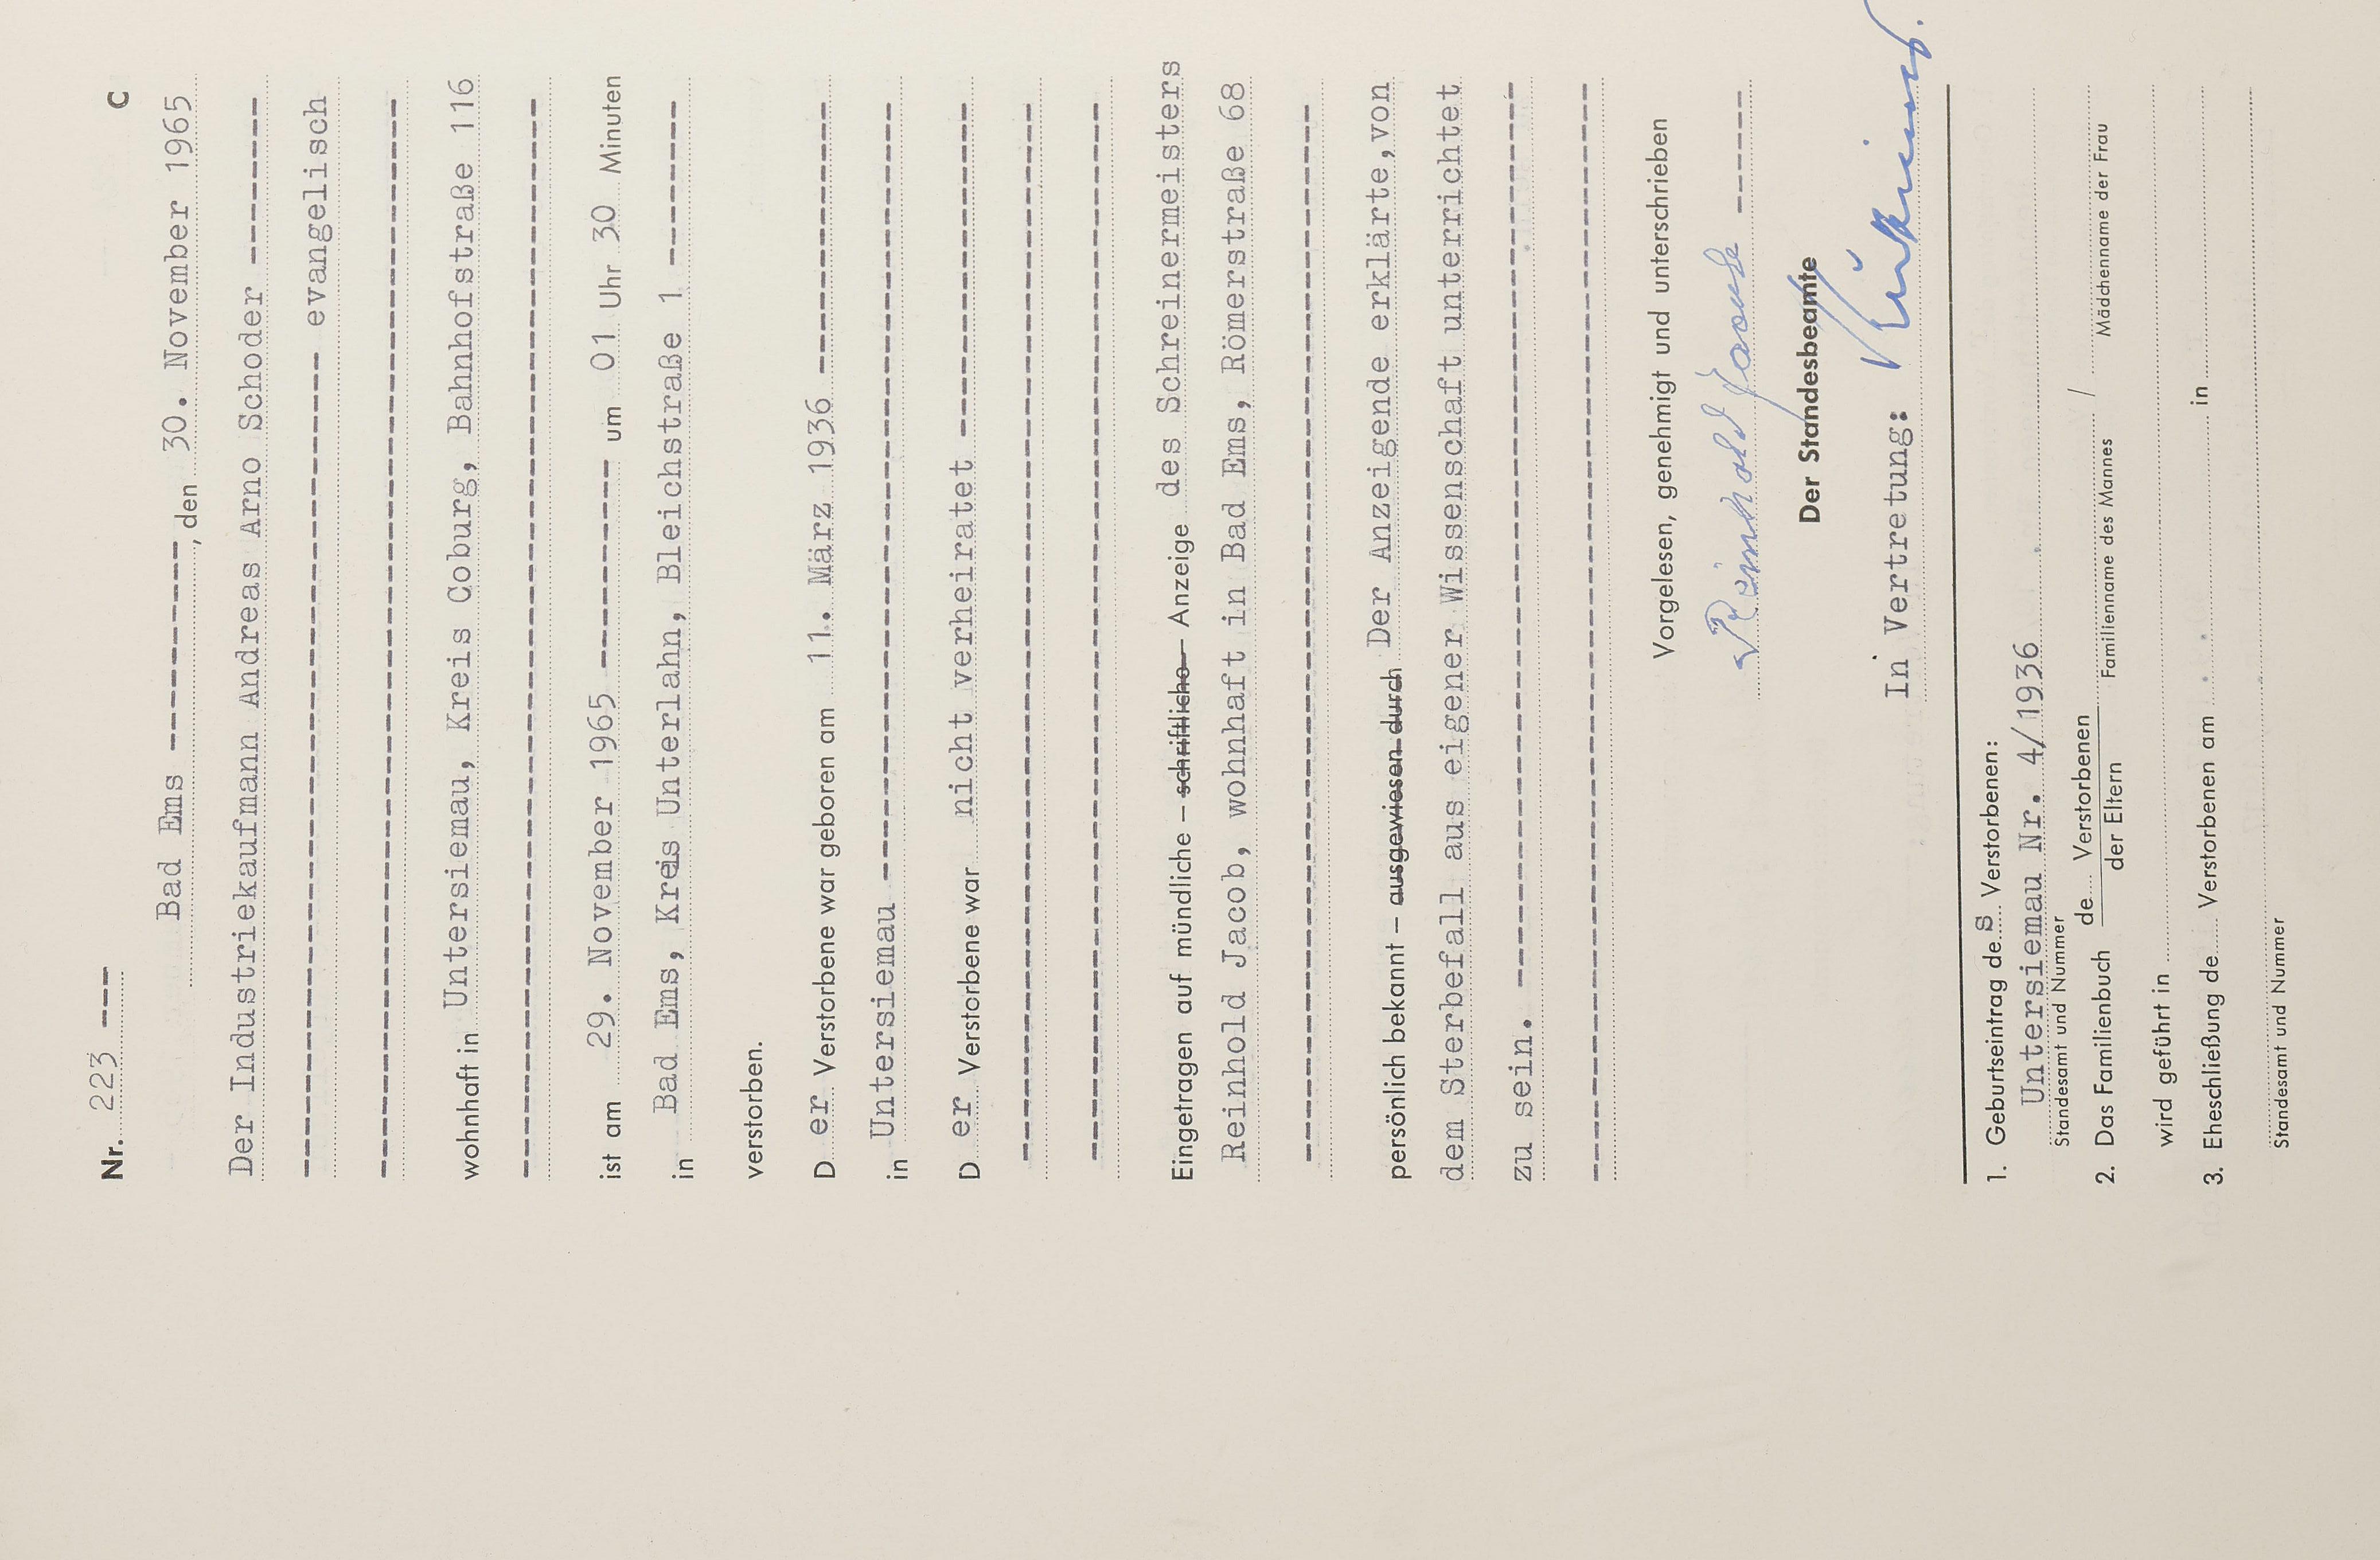 Nr. 223 --- C
Bad Ems ----------, den 30. November 1965
Der Industriekaufmann Andreas Arno Schoder --------
evangelisch
wohnhaft in Untersiemau, Kreis Coburg, Bahnhofstraße 116
ist am 29. November 1965 ---------- um 01 Uhr 30 Minuten
in Bad Ems, Kreis Unterlahn, Bleichstraße 1 --------
verstorben.
D er Verstorbene war geboren am 11. März 1936 -------------
in Untersiemau
D er Verstorbene war nicht verheiratet
Eingetragen auf mündliche – schriftliche – Anzeige des Schreinermeisters
Reinhold Jacob, wohnhaft in Bad Ems, Römerstraße 68
persönlich bekannt – ausgewiesen durch Der Anzeigende erklärte,von
dem Sterbefall aus eigener Wissenschaft unterrichtet
zu sein.
Vorgelesen, genehmigt und unterschrieben
Reinhold Jacob ------
Der Standesbeamte
In Vertretung:
1. Geburtseintrag des Verstorbenen:
Untersiemau Nr. 4/1936
Standesamt und Nummer
2. Das Familienbuch de... Verstorbenen / der Eltern
Familienname des Mannes / Mädchenname der Frau
wird geführt in
3. Eheschließung de... Verstorbenen am ... in
Standesamt und Nummer